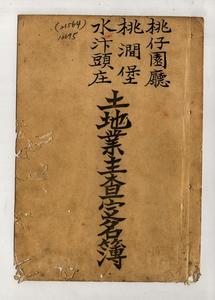 桃仔園廳
桃澗堡
水汴頭庄
土地業主查定名簿